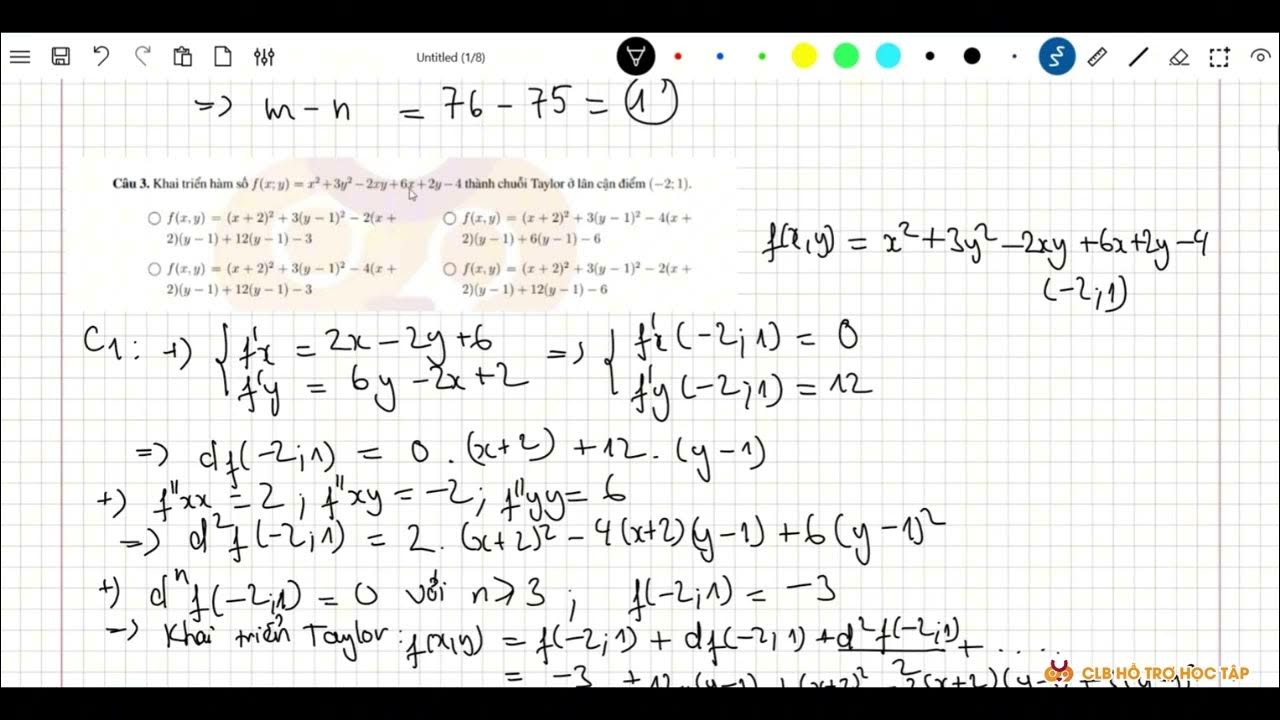 Untitled (1/8)
=> m - n = 76 - 75 = 1
Câu 3. Khai triển hàm số f(x; y) = x² + 3y² − 2xy + 6x + 2y − 4 thành chuỗi Taylor ở lân cận điểm (−2; 1).
f(x, y) = (x + 2)² + 3(y − 1)² − 2(x +
2)(y − 1) + 12(y − 1) − 3
f(x, y) = (x + 2)² + 3(y − 1)² − 4(x +
2)(y − 1) + 6(y − 1) − 6
f(x, y) = (x + 2)² + 3(y − 1)² − 4(x +
2)(y − 1) + 12(y − 1) − 3
f(x, y) = (x + 2)² + 3(y − 1)² − 2(x +
2)(y − 1) + 12(y − 1) − 6
f(x,y) = x² + 3y² − 2xy + 6x + 2y − 4
(−2;1)
C1: +) { f'x = 2x − 2y + 6 => { f'x(−2;1) = 0
f'y = 6y − 2x + 2 f'y(−2;1) = 12
=> df(−2;1) = 0.(x+2) + 12.(y−1)
+) f''xx = 2; f''xy = −2; f''yy = 6
=> d²f(−2;1) = 2.(x+2)² − 4(x+2)(y−1) + 6(y−1)²
+) dⁿf(−2;1) = 0 với n ⩾ 3; f(−2;1) = −3
=> Khai triển Taylor: f(x,y) = f(−2;1) + df(−2;1) + d²f(−2;1)/2 + .....
= −3 + 12.(y−1) + (x+2)² − 2(x+2)(y−1) + 3(y−1)²
CLB HỖ TRỢ HỌC TẬP